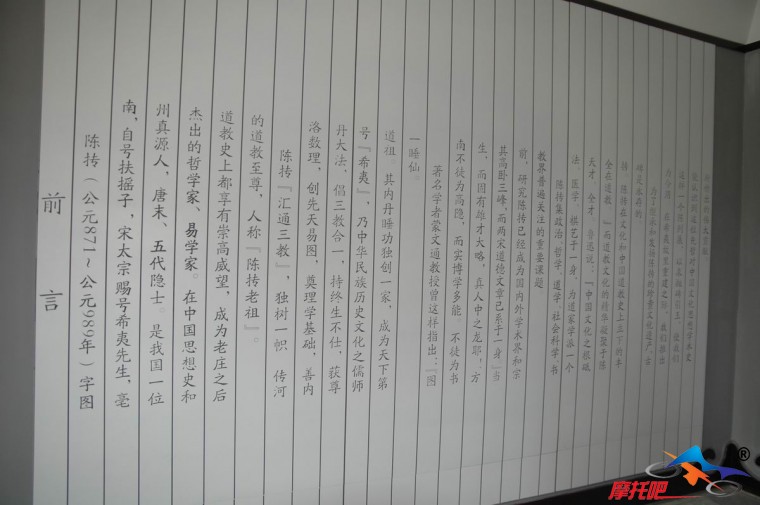 前言
陈抟（公元871～公元989年）字图
南，自号扶摇子，宋太宗赐号希夷先生，亳
州真源人，唐末、五代隐士。是我国一位
杰出的哲学家、易学家。在中国思想史和
道教史上都享有崇高威望，成为老庄之后
的道教至尊，人称『陈抟老祖』。
陈抟『汇通三教』，独树一帜，传河
洛数理，创先天易图，奠理学基础，善内
丹大法，倡三教合一，持终生不仕，获尊
号『希夷』，乃中华民族历史文化之儒师
道祖。其内丹睡功独创一家，成为天下第
一睡仙。
著名学者蒙文通教授曾这样指出：「图
南不徒为高隐，而实博学多能，不徒为书
生，而固有雄才大略，真人中之龙耶！方
其高卧三峰，而两宋道德文章已系于一身」当
前，研究陈抟已经成为国内外学术界和宗
教界普遍关注的重要课题
陈抟集政治、哲学、道学、社会科学、书
法、医学、棋艺于一身，为道家学派一个
天才、全才。鲁迅说：「中国文化之根砥
全在道教。」而道教文化的精华凝聚于陈
抟，陈抟在文化和中国道教史上的丰
碑是永存的
摩托吧®